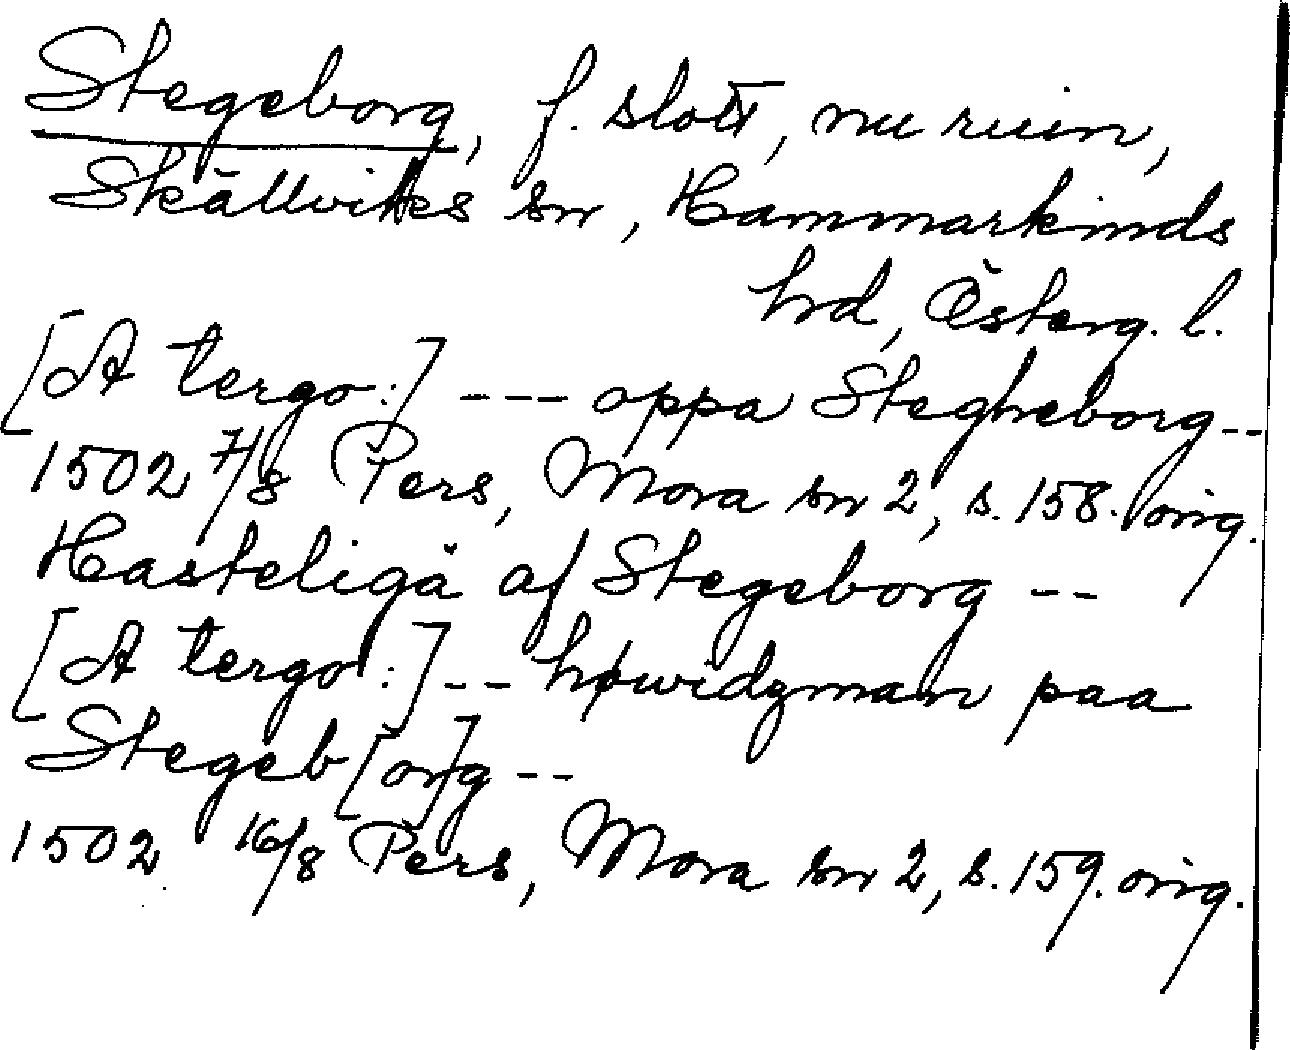 Stegeborg, f. slott, nu ruin,
Skällvikes sn, Hammarkinds
hd, Österg. l.
[A tergo:] --- oppa Stegheborg--
1502 7/8 Pers, Mora sn 2, s. 158. orig.
Hasteligä af Stegeborg --
[A tergo:] -- høwidzman paa
Stegeb[or]g --
1502 16/8 Pers, Mora sn 2, s. 159. orig.